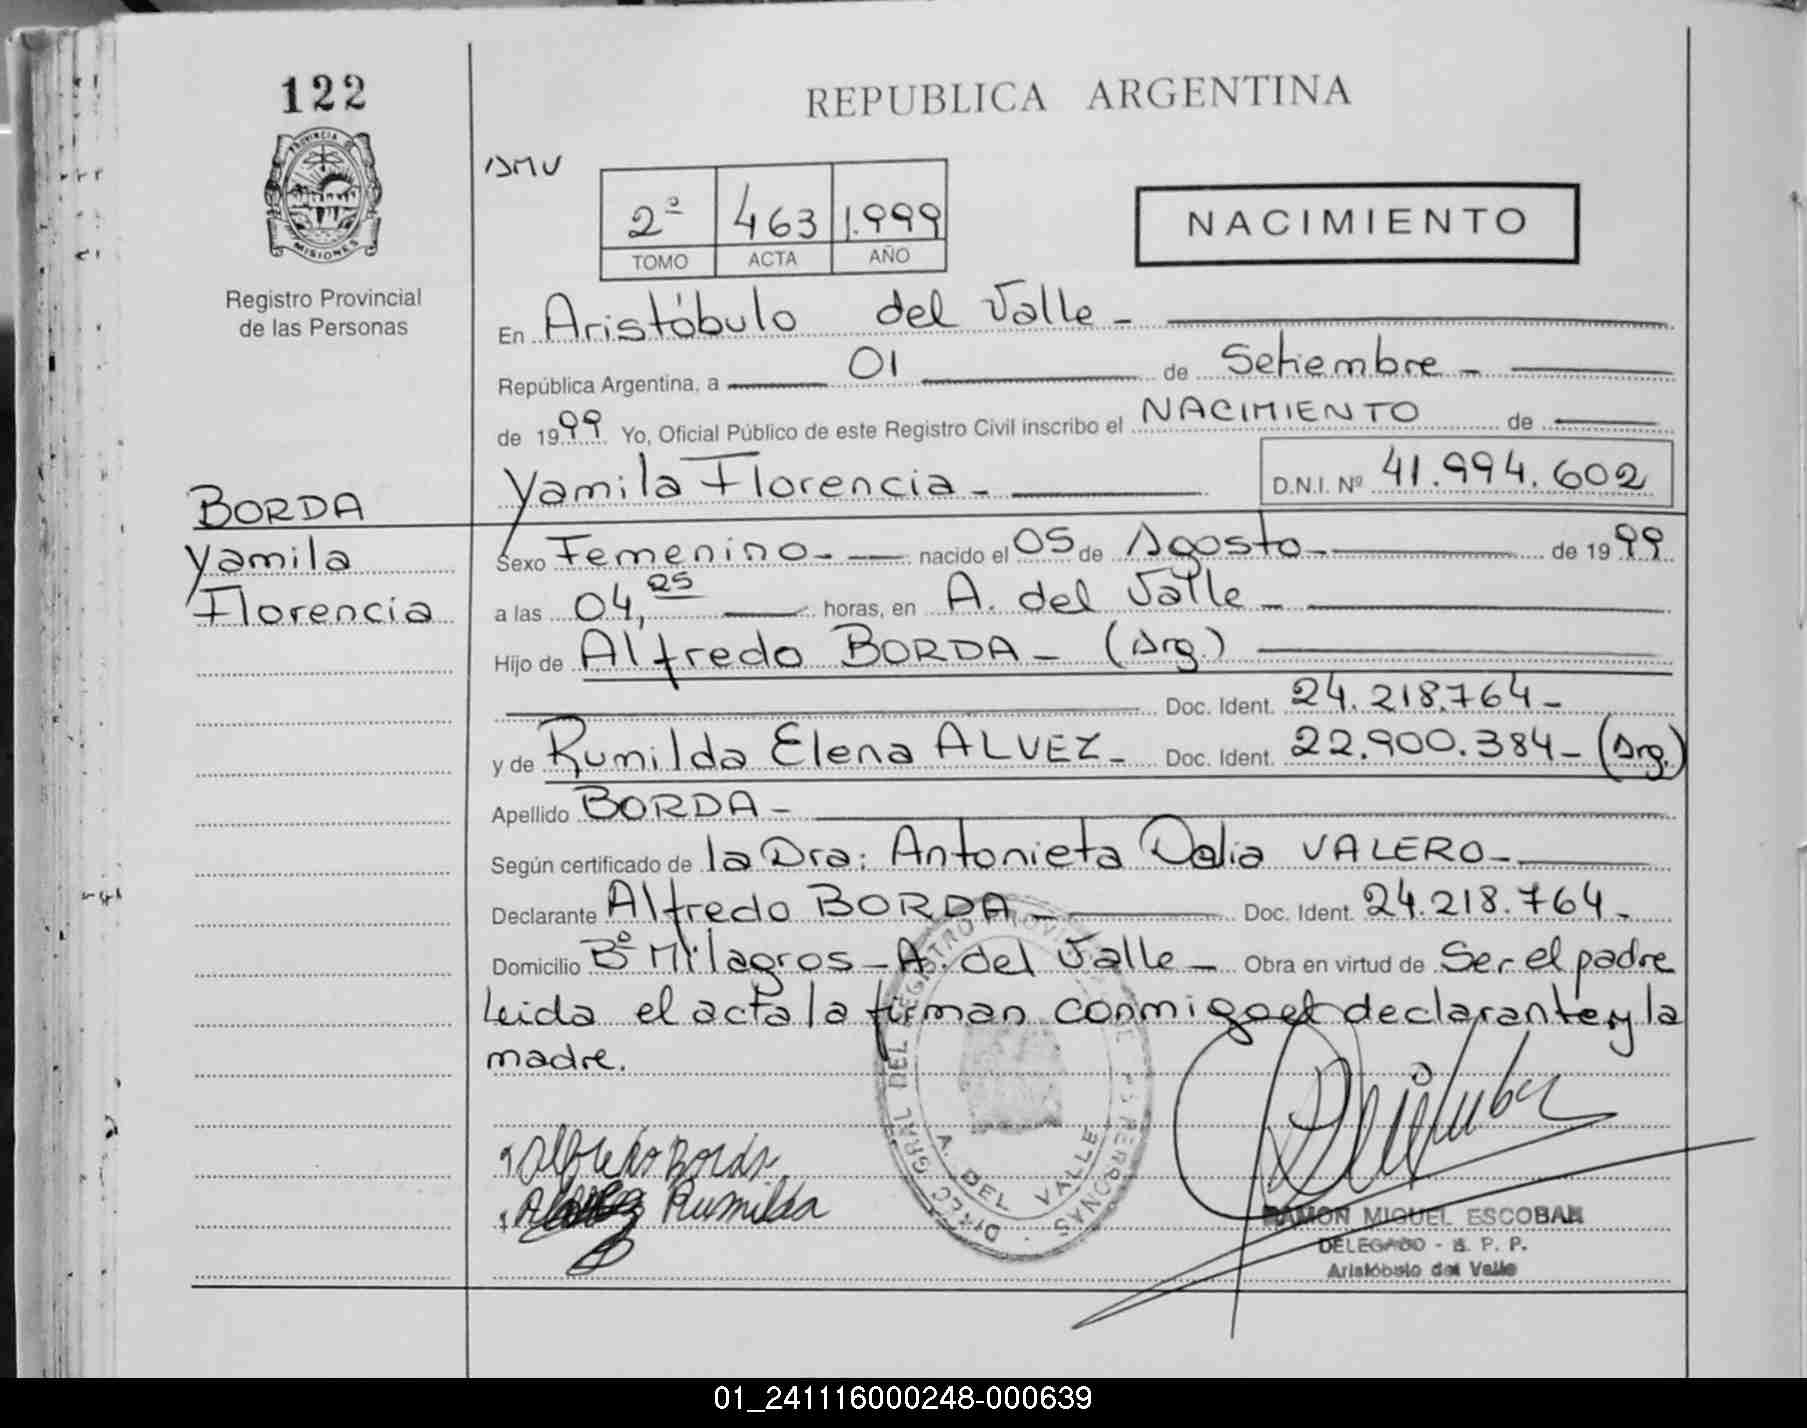 122
REPUBLICA ARGENTINA
PROVINCIA
MISIONES
Registro Provincial
de las Personas
AMV
2º 463 1.999
TOMO ACTA AÑO
NACIMIENTO
En Aristóbulo del Valle -
República Argentina, a 01 de Setiembre -
de 1999 Yo, Oficial Público de este Registro Civil inscribo el NACIMIENTO de
Yamila Florencia - D.N.I. Nº 41.994.602
BORDA
Yamila
Florencia
Sexo Femenino - nacido el 05 de Agosto - de 1999
a las 04,25 horas, en A. del Valle -
Hijo de Alfredo BORDA - (Arg.)
Doc. Ident. 24.218.764 -
y de Rumilda Elena ALVEZ - Doc. Ident. 22.900.384 - (Arg.)
Apellido BORDA -
Según certificado de la Dra: Antonieta Delia VALERO -
Declarante Alfredo BORDA - Doc. Ident. 24.218.764 -
Domicilio Bº Milagros - A. del Valle - Obra en virtud de Ser el padre
Leida el acta la firman conmigo el declarante y la
madre.
Alfredo Borda
Rumilda
A. DEL VALLE
RAMON MIGUEL ESCOBAR
DELEGADO - R. P. P.
Aristóbulo del Valle
01_241116000248-000639